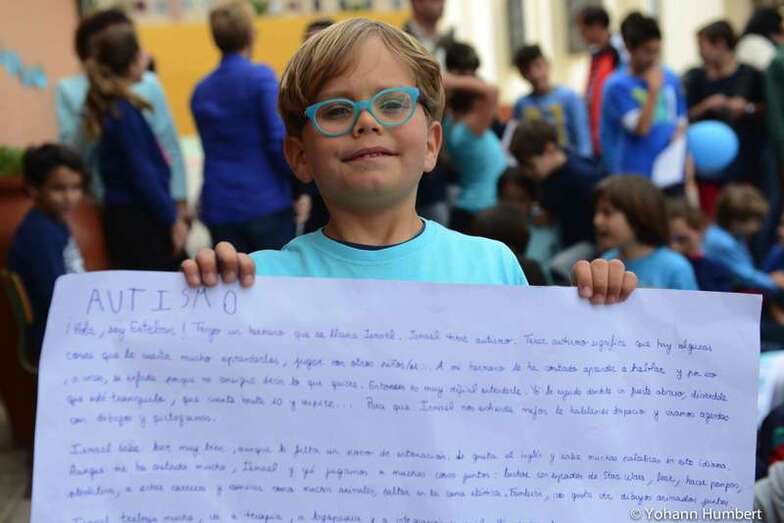 AUTISMO
¡Hola, soy Esteban! Tengo un hermano que se llama Ismael. Ismael tiene autismo. Tener autismo significa que hay algunas
cosas que le cuesta mucho aprenderlas, jugar con otros niños/as... A mi hermano le ha costado aprender a hablar y por eso
, a veces, se enfada porque no consigue decir lo que quiere. Entonces es muy difícil entenderle. Yo le ayudo dándole un fuerte abrazo, diciéndole
que esté tranquilo, que cuente hasta 10 y respire... Para que Ismael nos entienda mejor le hablamos despacio y usamos agendas
con dibujos y pictogramas.
Ismael sabe leer muy bien, aunque le falta un poco de entonación. Le gusta el inglés y sabe muchas palabras en este idioma.
Aunque me ha costado mucho, Ismael y yo jugamos a muchas cosas juntos: luchar con espadas de Star Wars, leer, hacer pompas,
plastilina, a echar carreras y comernos como muchos animales, saltar en la cama elástica. También, nos gusta ver dibujos animados juntos.
Ismael trabaja mucho, va a terapia, a logopedia y a
© Yohann Humbert